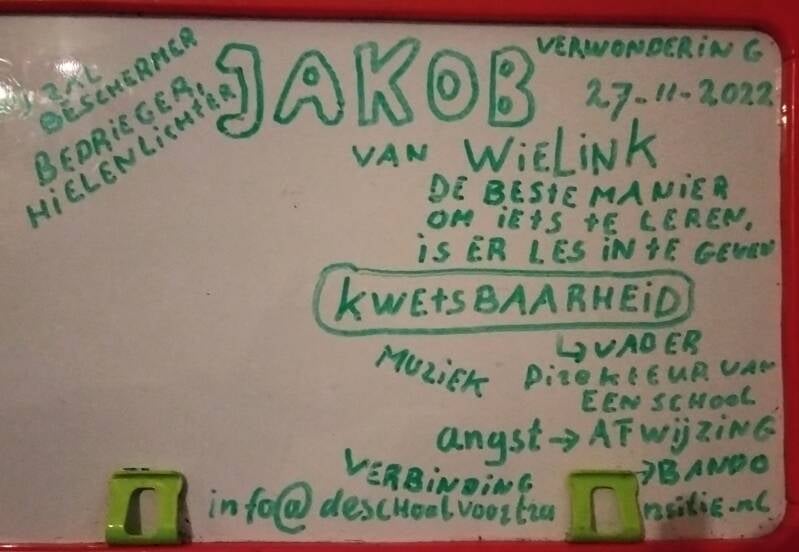 ZAL
BESCHERMER
BEDRIEGER,
HIELENLICHTER
JAKOB
VERWONDERING
27-11-2022
VAN WIELINK
DE BESTE MANIER
OM IETS TE LEREN,
IS ER LES IN TE GEVEN
KWETSBAARHEID
↳ VADER
MUZIEK
DIREKTEUR VAN
EEN SCHOOL
angst → AFWIJZING
VERBINDING
→ BANDO
info@deschoolvoortra nsitie.nl